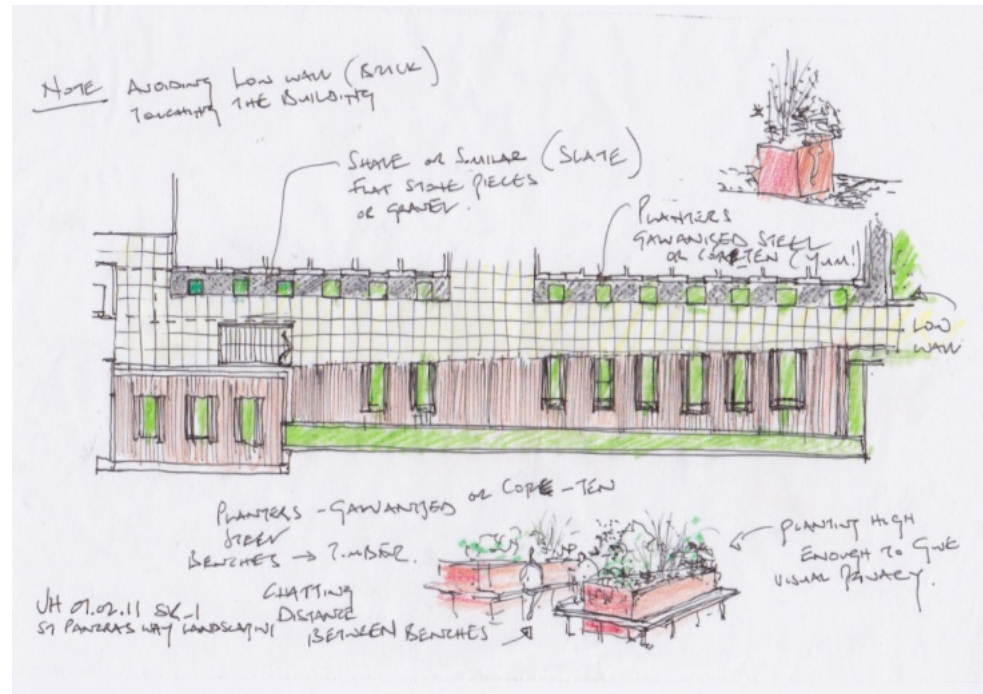 NOTE AVOIDING LOW WALL (BRICK)
TOUCHING THE BUILDING
SHALE OR SIMILAR (SLATE)
FLAT STONE PIECES
OR GRAVEL.
PLANTERS
GALVANISED STEEL
OR CORETEN (YUM!
LOW
WALL
PLANTERS - GALVANISED OR CORE-TEN
STEEL
BENCHES → TIMBER.
CHATTING
DISTANCE
BETWEEN BENCHES
PLANTING HIGH
ENOUGH TO GIVE
VISUAL PRIVACY.
JH 01.02.11 SK-1
ST PANCRAS WAY LANDSCAPING